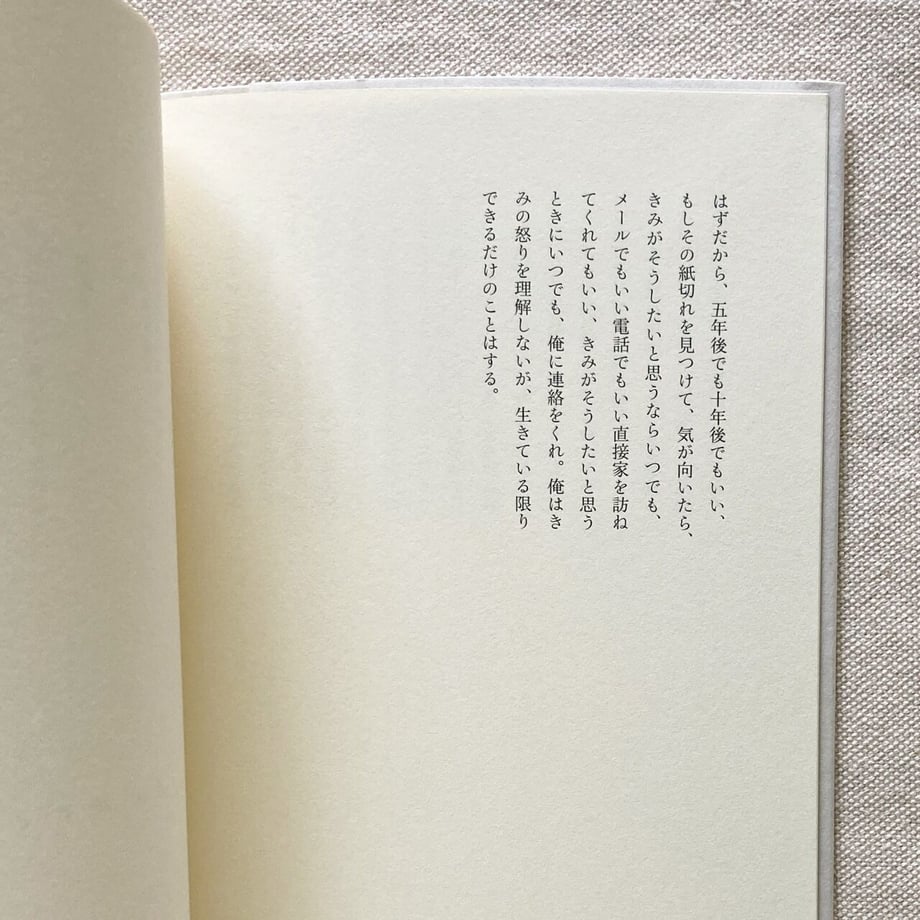 はずだから、五年後でも十年後でもいい、
もしその紙切れを見つけて、気が向いたら、
きみがそうしたいと思うならいつでも、
メールでもいい電話でもいい直接家を訪ね
てくれてもいい、きみがそうしたいと思う
ときにいつでも、俺に連絡をくれ。俺はき
みの怒りを理解しないが、生きている限り
できるだけのことはする。